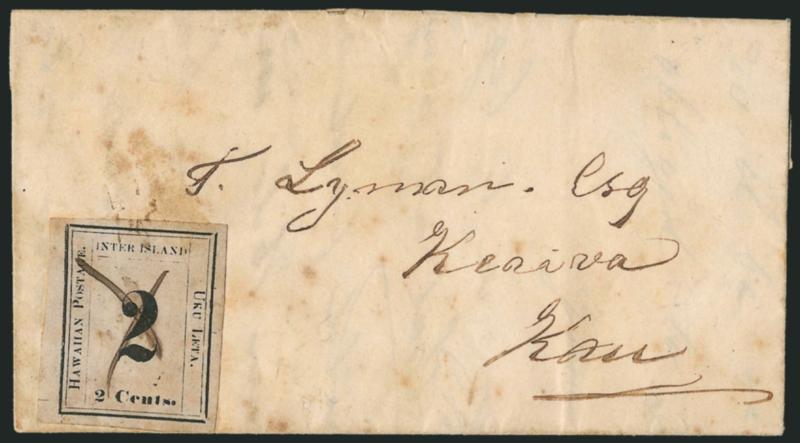 F. Lyman. Esq
Keaiva
Kau
INTER ISLAND
HAWAIIAN POSTAGE.
UKU LETA.
2
2 Cents.